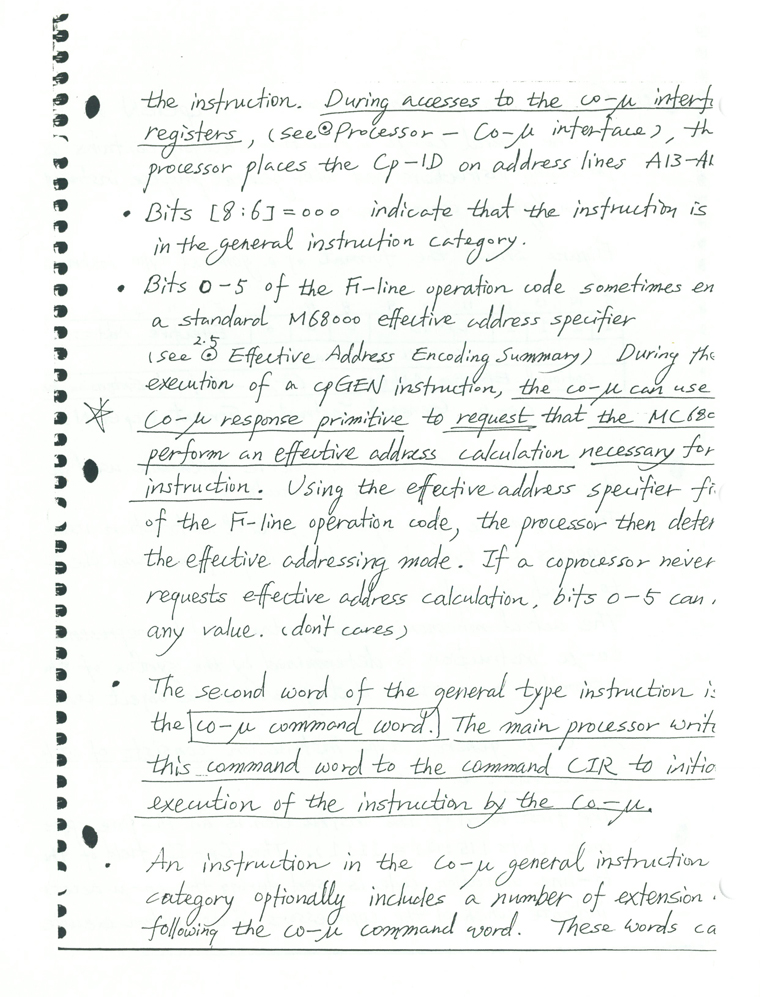 the instruction. During accesses to the co-μ interf
registers, (see⊙Processor - Co-μ interface), th
processor places the Cp-ID on address lines A13-A1
• Bits [8:6]=000 indicate that the instruction is
in the general instruction category.
• Bits 0-5 of the F-line operation code sometimes en
a standard M68000 effective address specifier
(see 2.5 ⊙ Effective Address Encoding Summary) During the
execution of a cpGEN instruction, the co-μ can use
Co-μ response primitive to request that the MC680
perform an effective address calculation necessary for
instruction. Using the effective address specifier fi
of the F-line operation code, the processor then deter
the effective addressing mode. If a coprocessor never
requests effective address calculation, bits 0-5 can
any value. (don't cares)
• The second word of the general type instruction is
the co-μ command word. The main processor writ
this command word to the command CIR to initia
execution of the instruction by the Co-μ.
• An instruction in the co-μ general instruction
category optionally includes a number of extension
following the co-μ command word. These words ca